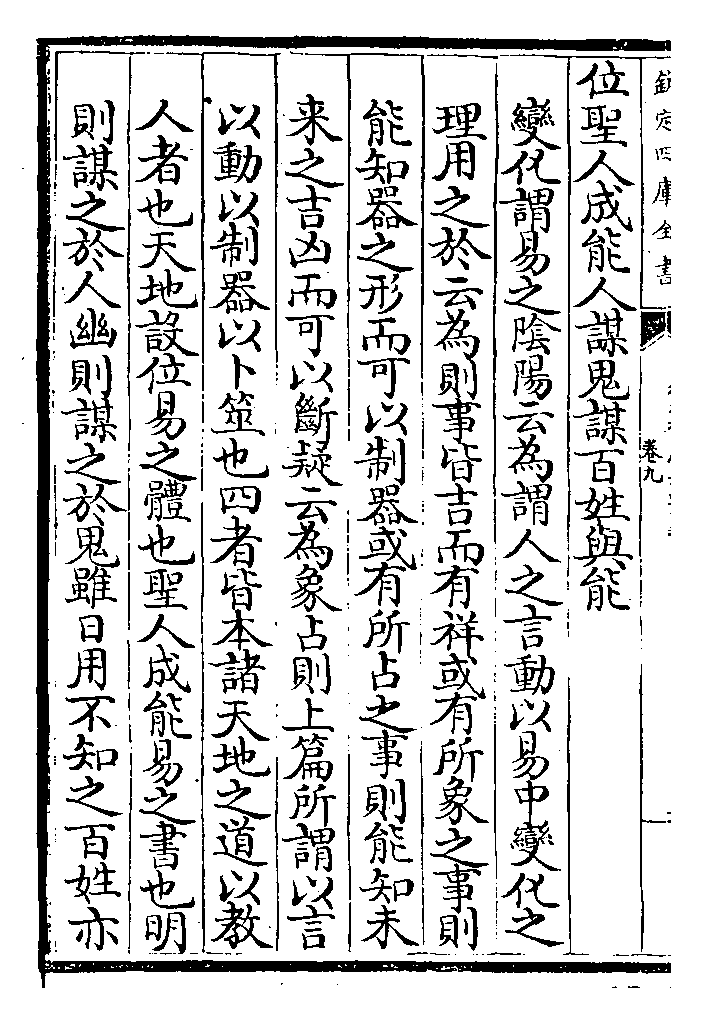 欽定四庫全書
卷九
位聖人成能人謀鬼謀百姓與能
變化謂易之陰陽云為謂人之言動以易中變化之
理用之於云為則事皆吉而有祥或有所象之事則
能知器之形而可以制器或有所占之事則能知未
来之吉凶而可以斷疑云為象占則上篇所謂以言
以動以制器以卜筮也四者皆本諸天地之道以教
人者也天地設位易之體也聖人成能易之書也明
則謀之於人幽則謀之於鬼雖日用不知之百姓亦